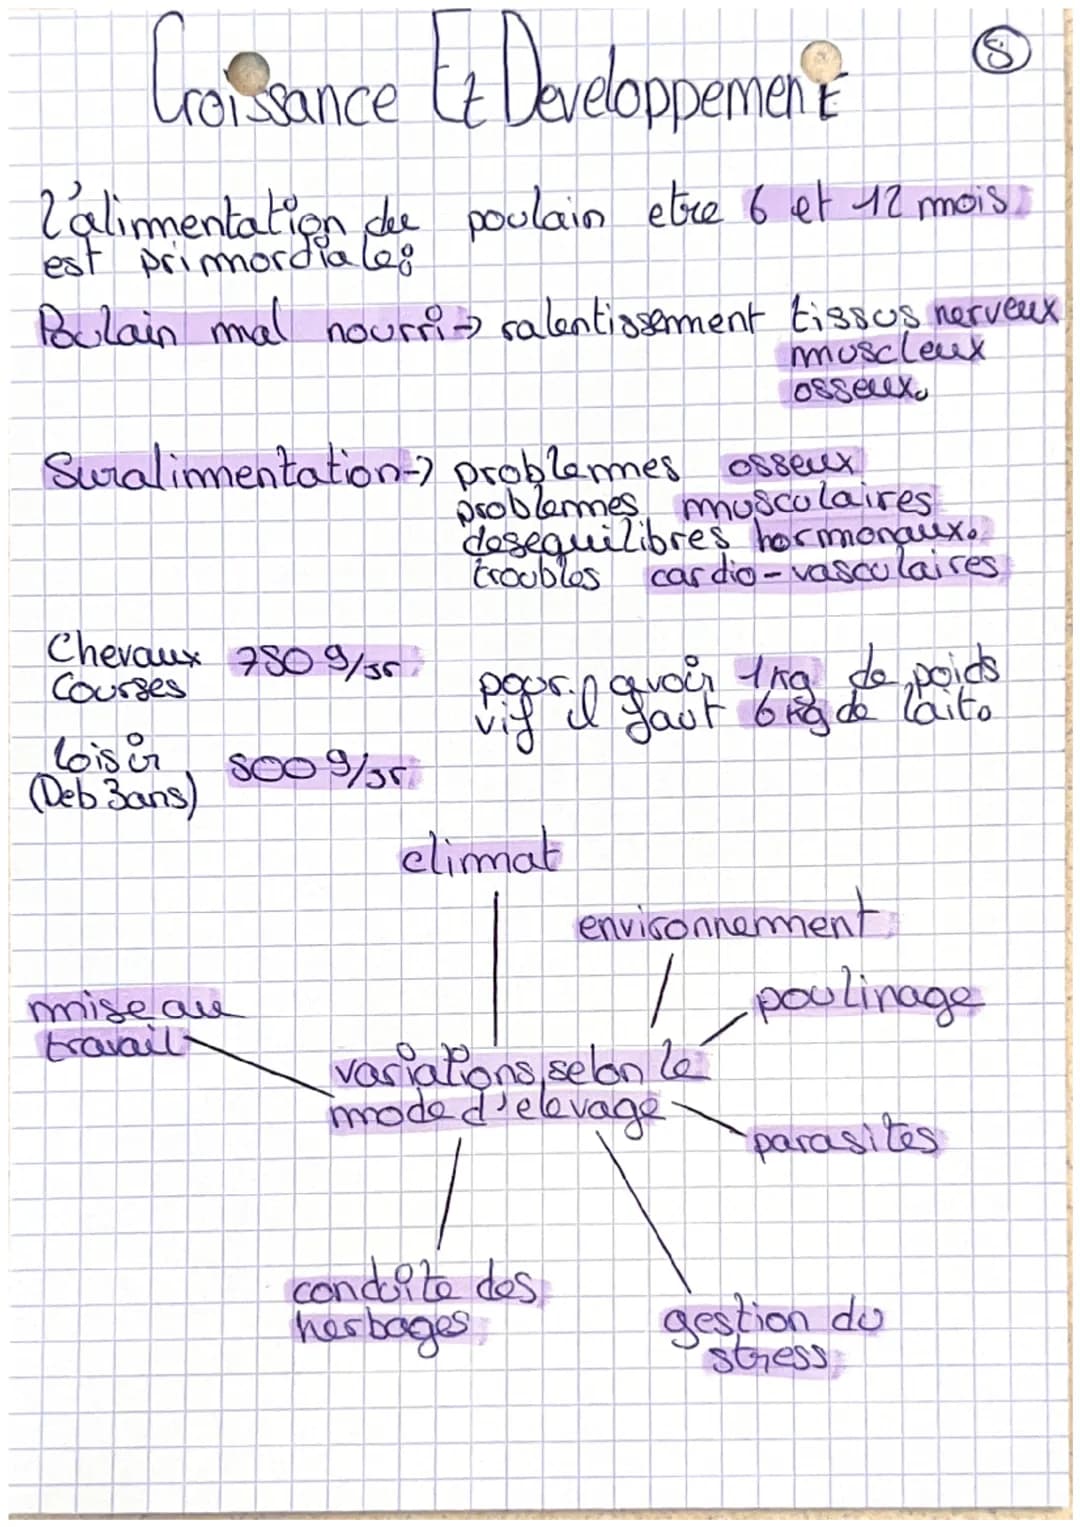 Croissance Et Developpement
8
l'alimentation du poulain etre 6 et 12 mois
est primordiale:
Poulain mal nourri → ralentissement tissus nerveux
muscleux
osseux.
Suralimentation → problemes osseux
problemes musculaires
desequilibres hormonaux.
troubles cardio-vasculaires
Chevaux 750 g/jr
Courses
pour avoir 1kg de poids
vif il faut 6 kg de lait.
loisir 500 g/jr
(Deb 3ans)
climat
environnement
poulinage
mise au
travail
variations selon le
mode d'elevage
parasites
conduite des
herbages
gestion du
stress